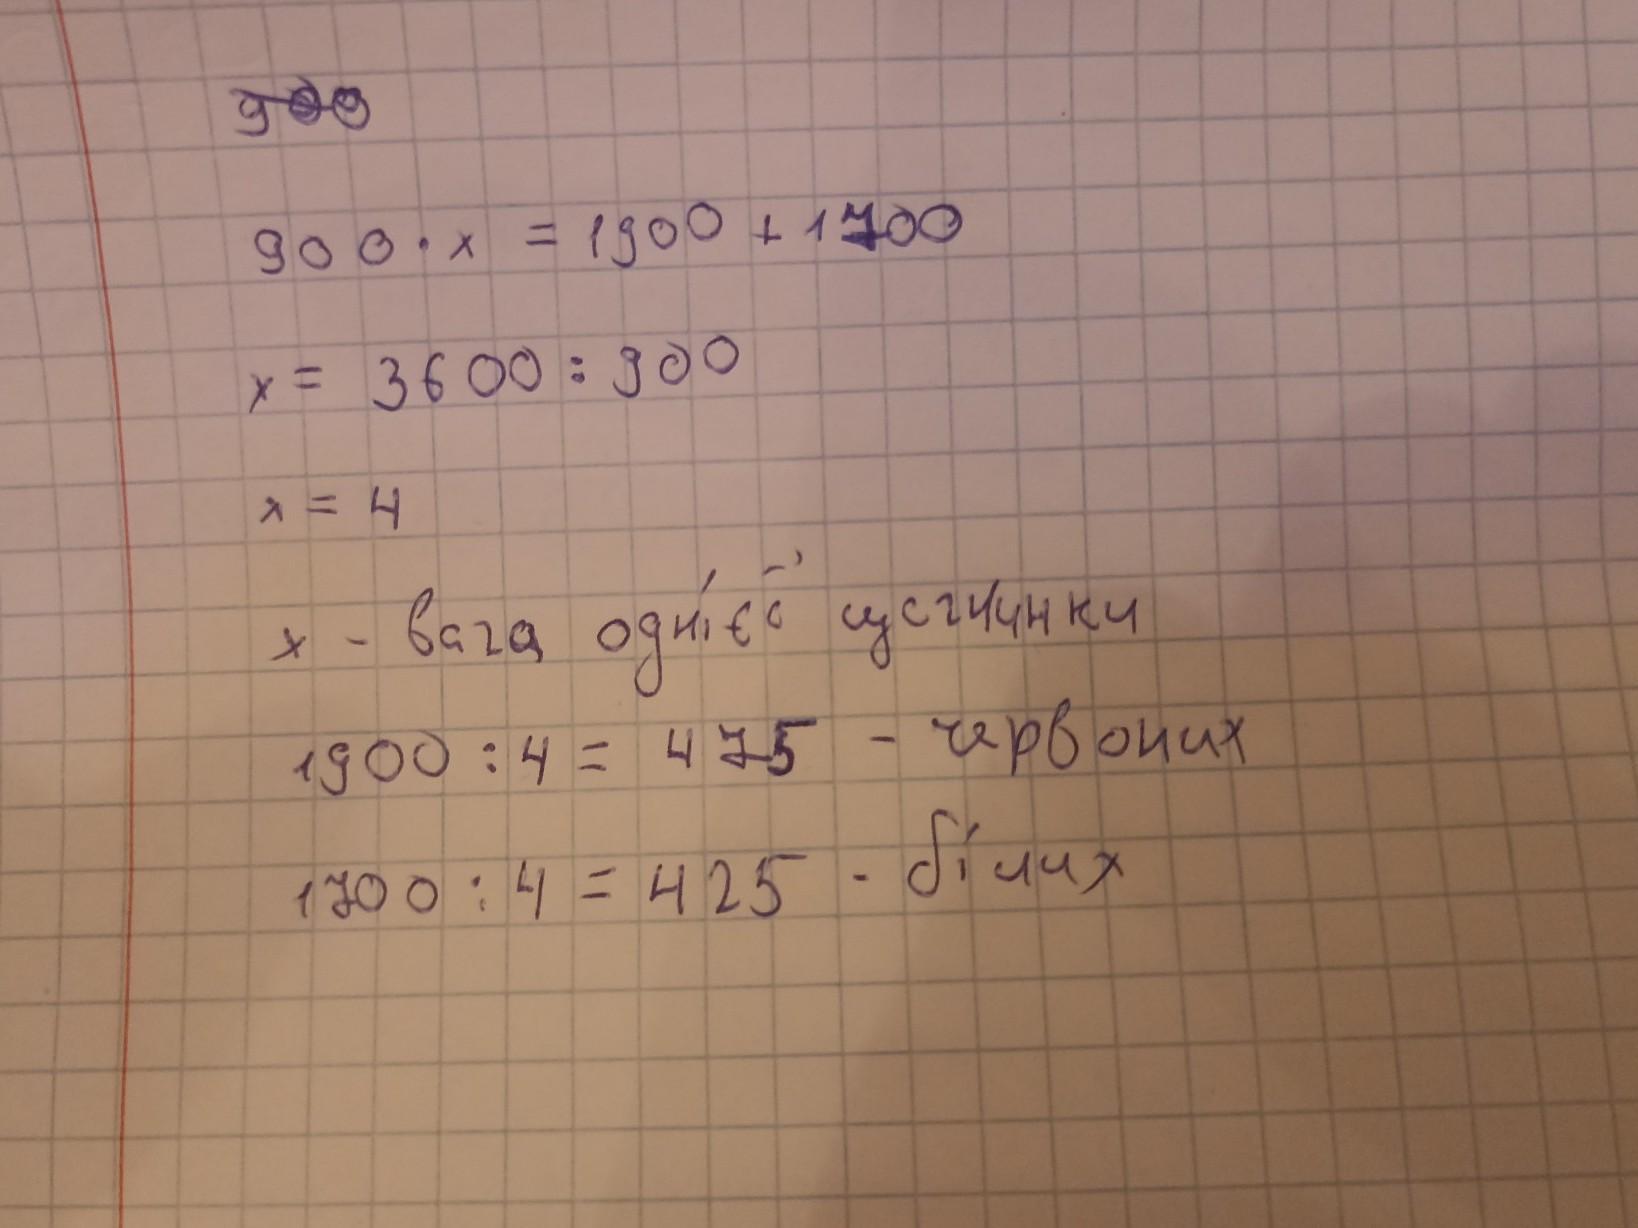 900
900 · x = 1900 + 1700
x = 3600 : 900
x = 4
x - вага однієї
1900 : 4 = 475 - червоних
1700 : 4 = 425 - білих